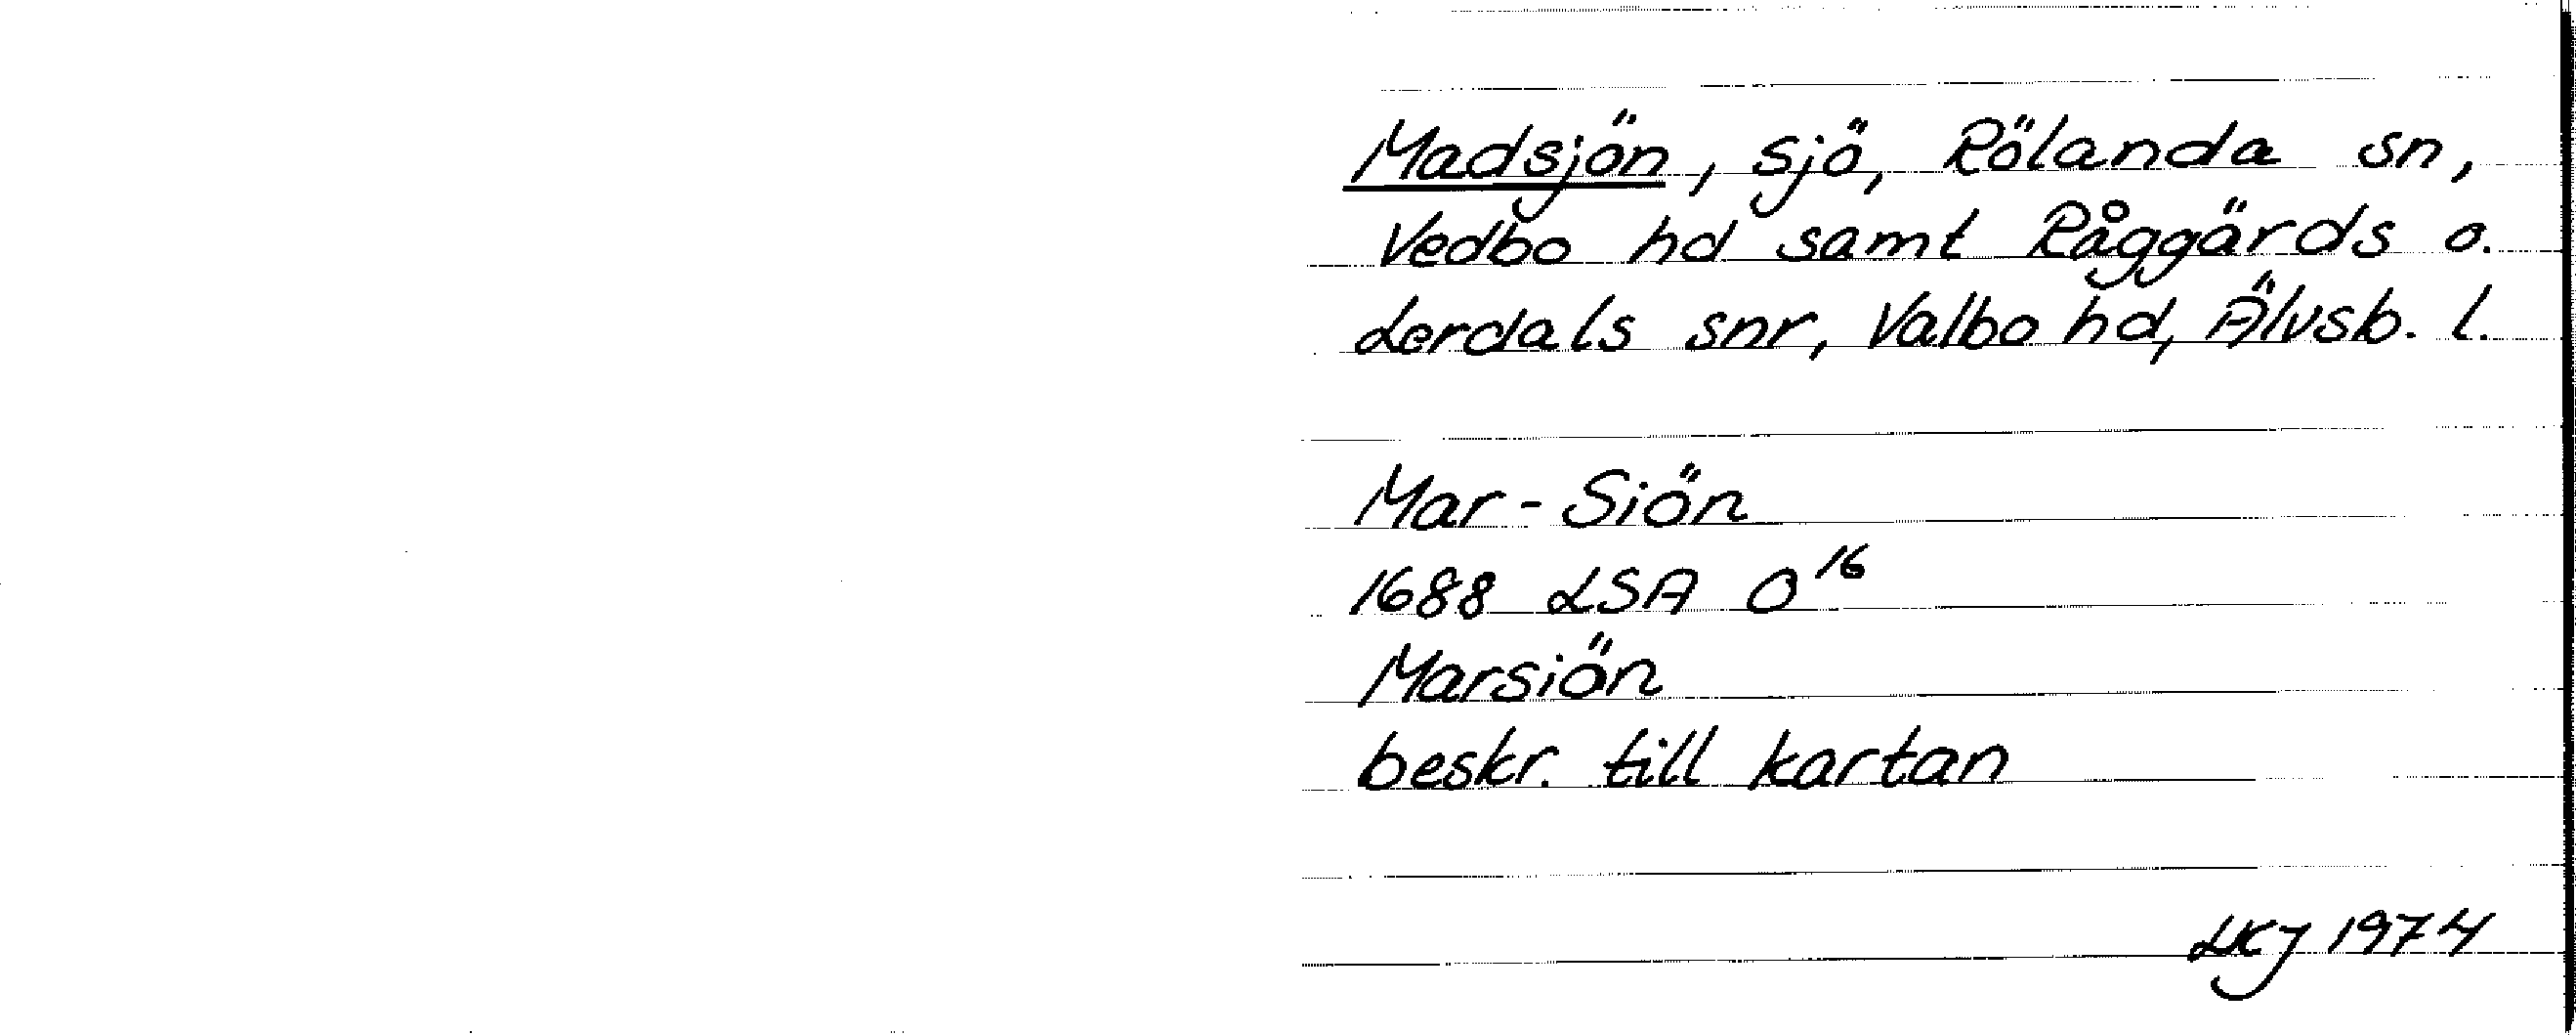 Madsjön, sjö, Rölanda sn,
Vedbo hd samt Råggärds o.
Lerdals snr, Valbo hd, Älvsb. l.
Mar-Siön
1688 LSA O16
Marsiön
beskr. till kartan
LKJ 1974